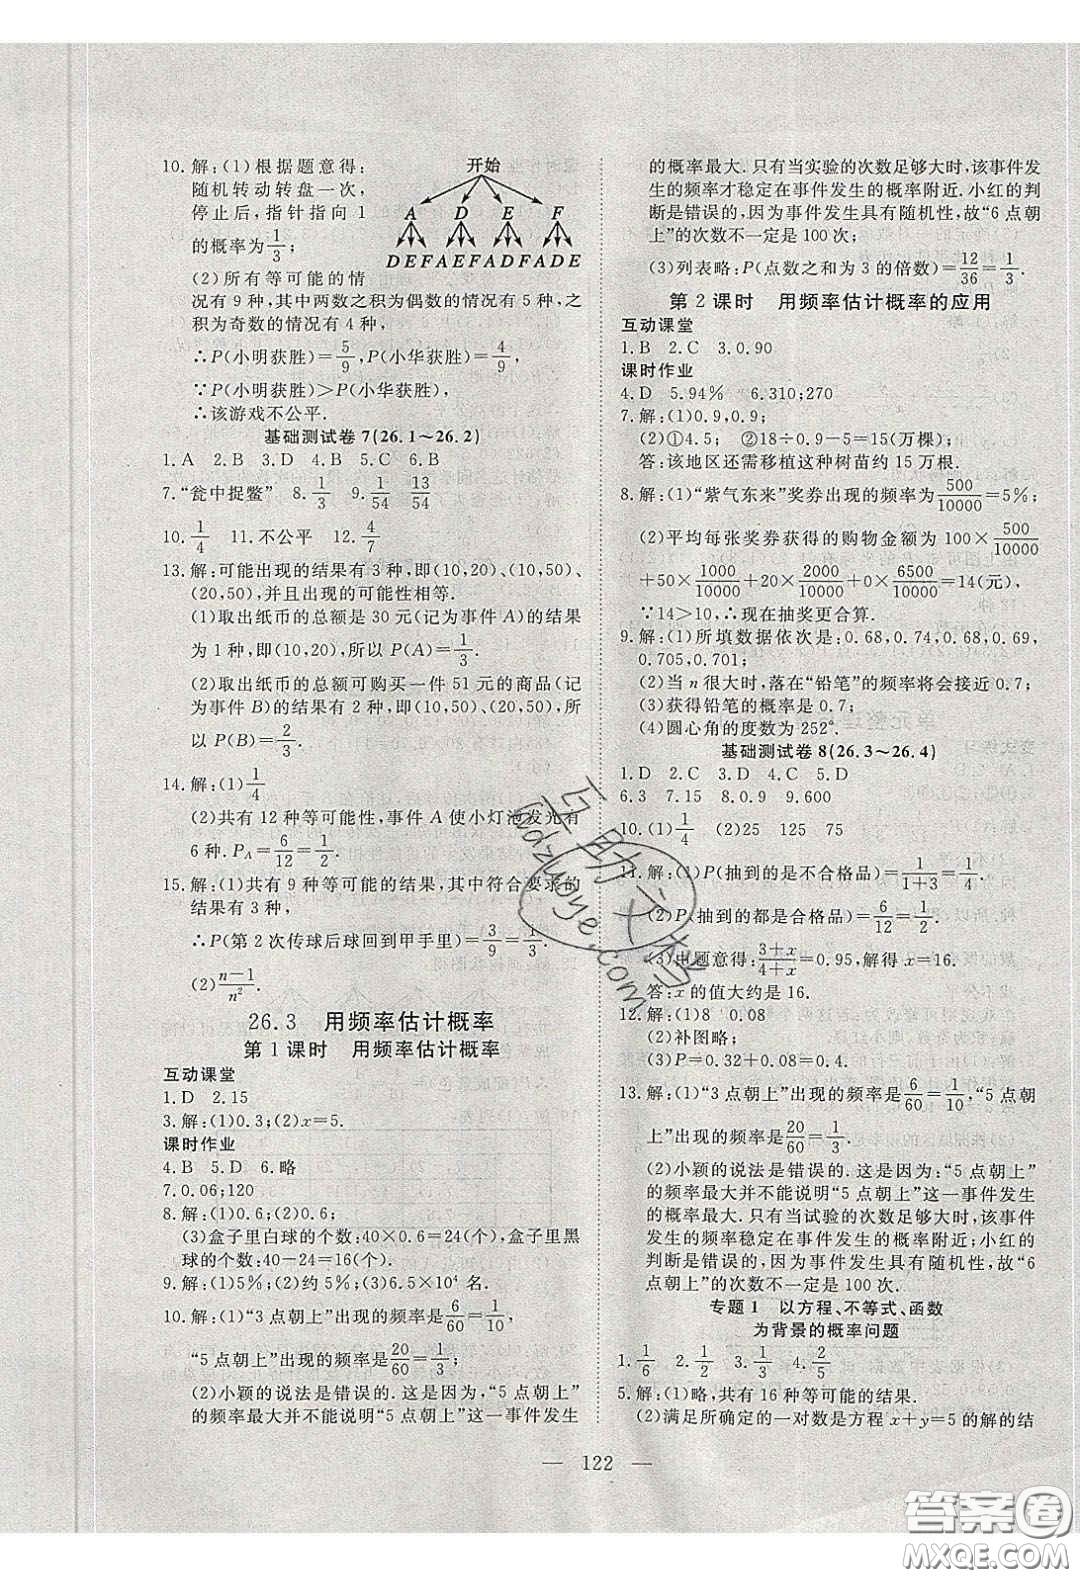 10.解:(1)根据题意得:
随机转动转盘一次,
停止后,指针指向 1
的概率为1/3;
(2)所有等可能的情
开始
A D E F
D E F A E F A D F A D E
况有 9 种,其中两数之积为偶数的情况有 5 种,之
积为奇数的情况有 4 种,
∴P(小明获胜)=5/9,P(小华获胜)=4/9,
∵P(小明获胜)>P(小华获胜),
∴该游戏不公平.
基础测试卷 7(26.1～26.2)
1.A 2.B 3.D 4.B 5.C 6.B
7.“瓮中捉鳖” 8.1/3 9.1/54 13/54
10.1/4 11.不公平 12.4/7
13.解:可能出现的结果有 3 种,即(10,20)、(10,50)、
(20,50),并且出现的可能性相等.
(1)取出纸币的总额是 30 元(记为事件 A)的结果
为 1 种,即(10,20),所以 P(A)=1/3.
(2)取出纸币的总额可购买一件 51 元的商品(记
为事件 B)的结果有 2 种,即(10,50)、(20,50),所
以 P(B)=2/3.
14.解:(1)1/4
(2)共有 12 种等可能性,事件 A 使小灯泡发光有
6 种.P_A=6/12=1/2.
15.解:(1)共有 9 种等可能的结果,其中符合要求的
结果有 3 种,
∴P(第 2 次传球后球回到甲手里)=3/9=1/3.
(2)(n-1)/n².
26.3 用频率估计概率
第 1 课时 用频率估计概率
互动课堂
1.D 2.15
3.解:(1)0.3;(2)x=5.
课时作业
4.B 5.D 6.略
7.0.06;120
8.解:(1)0.6;(2)0.6;
(3)盒子里白球的个数:40×0.6=24(个),盒子里黑
球的个数:40-24=16(个).
9.解:(1)5%;(2)约 5%;(3)6.5×10⁴ 名.
10.解:(1)“3 点朝上”出现的频率是6/60=1/10,
“5 点朝上”出现的频率是20/60=1/3;
(2)小颖的说法是错误的.这是因为:“5 点朝上”
的频率最大并不能说明“5 点朝上”这一事件发生
的概率最大.只有当实验的次数足够大时,该事件发
生的频率才稳定在事件发生的概率附近.小红的判
断是错误的,因为事件发生具有随机性,故“6 点朝
上”的次数不一定是 100 次;
(3)列表略:P(点数之和为 3 的倍数)=12/36=1/3.
第 2 课时 用频率估计概率的应用
互动课堂
1.B 2.C 3.0.90
课时作业
4.D 5.94% 6.310;270
7.解:(1)0.9,0.9;
(2)①4.5; ②18÷0.9-5=15(万棵)
答:该地区还需移植这种树苗约 15 万棵.
8.解:(1)“紫气东来”奖券出现的频率为500/10000=5%;
(2)平均每张奖券获得的购物金额为 100×500/10000
+50×1000/10000+20×2000/10000+0×6500/10000=14(元),
∵14>10,∴现在抽奖更合算.
9.解:(1)所填数据依次是:0.68,0.74,0.68,0.69,
0.705,0.701;
(2)当 n 很大时,落在“铅笔”的频率将会接近 0.7;
(3)获得铅笔的概率是 0.7;
(4)圆心角的度数为 252°.
基础测试卷 8(26.3～26.4)
1.D 2.C 3.D 4.C 5.D
6.3 7.15 8.0.9 9.600
10.(1)1/4 (2)25 125 75
11.解:(1)P(抽到的是不合格品)=1/(1+3)=1/4.
(2)P(抽到的都是合格品)=6/12=1/2.
(3)由题意得:(3+x)/(4+x)=0.95,解得 x=16.
答:x 的值大约是 16.
12.解:(1)8 0.08
(2)补图略;
(3)P=0.32+0.08=0.4.
13.解:(1)“3 点朝上”出现的频率是6/60=1/10,“5 点朝
上”出现的频率是20/60=1/3.
(2)小颖的说法是错误的.这是因为:“5 点朝上”
的频率最大并不能说明“5 点朝上”这一事件发生
的概率最大.只有当试验的次数足够大时,该事件发
生的频率稳定在事件发生的概率附近;小红的
判断是错误的,因为事件发生具有随机性,故“6
点朝上”的次数不一定是 100 次.
专题 1 以方程、不等式、函数
为背景的概率问题
1.1/6 2.1/2 3.1/3 4.2/5
5.解:(1)略,共有 16 种等可能的结果.
(2)满足所确定的一对数是方程 x+y=5 的解的结
— 122 —
答案圈
MXQE.COM